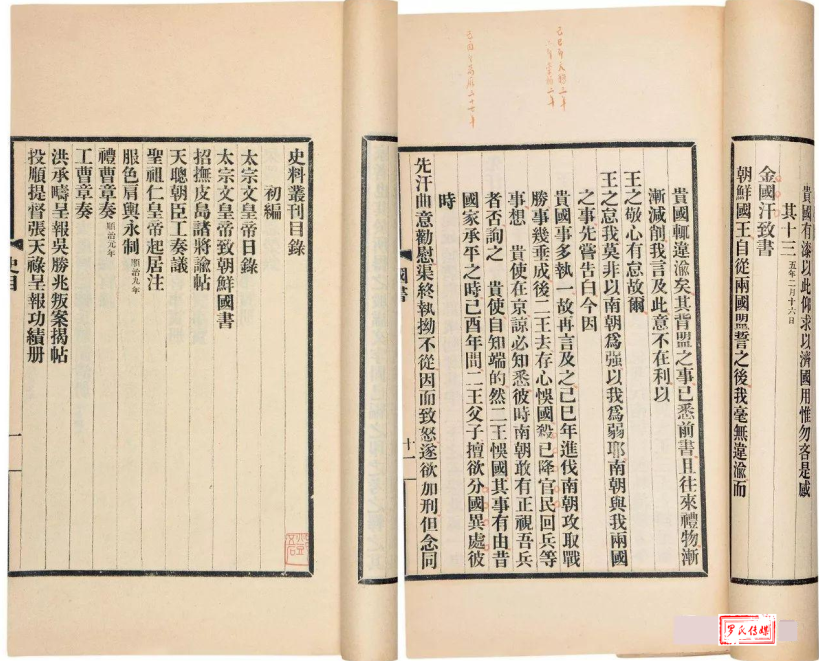 史料叢刊目錄
初編
太宗文皇帝日錄
太宗文皇帝致朝鮮國書
招撫皮島諸將諭帖
天聰朝臣工奏議
聖祖仁皇帝起居注
服色肩輿永制 順治九年
禮曹章奏 順治元年
工曹章奏
洪承疇呈報吳勝兆叛案揭帖
投順提督張天祿呈報功績册
史目
一
貴國有漆以此仰求以濟國用惟勿吝是感
其十三 五年二月十六日
金國汗致書
朝鮮國王自從兩國盟誓之後我毫無違渝而
貴國輒違渝矣其背盟之事已悉前書且往來禮物漸
漸減削我言及此意不在利以
王之敬心有怠故爾
王之怠我莫非以南朝爲強以我爲弱耶南朝與我兩國
之事先嘗告白今因
貴國事多執一故再言及之己巳年進伐南朝攻取戰
勝事幾垂成後二王去存心悞國殺已降官民回兵等
事想 貴使在京諒必知悉彼時南朝敢有正視吾兵
者否詢之 貴使自知端的然二王悞國其事有由昔
國家承平之時己酉年間二王父子擅欲分國異處彼
時
先汗曲意勸慰渠終執拗不從因而致怒遂欲加刑但念同
國書
十一
己巳年天聰三年
崇禎二年
己酉年萬曆三十七年
罗氏传媒